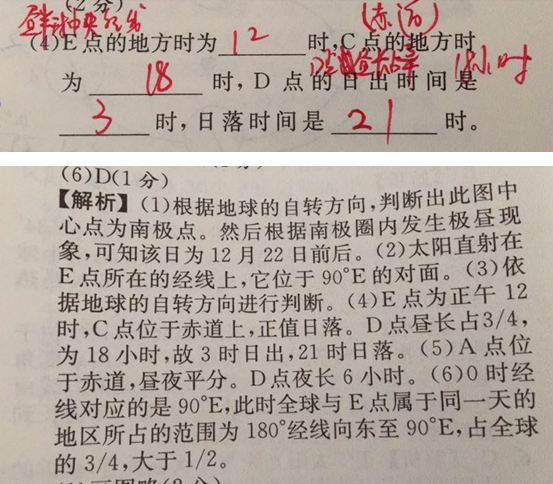 (2分)
昼半球中央经线
(赤道)
(4)E点的地方时为 12 时,C点的地方时
D点昼长占 18小时
为 18 时,D点的日出时间是
3 时,日落时间是 21 时。
(6)D(1分)
【解析】(1)根据地球的自转方向,判断出此图中
心点为南极点。然后根据南极圈内发生极昼现
象,可知该日为12月22日前后。(2)太阳直射在
E点所在的经线上,它位于90°E的对面。(3)依
据地球的自转方向进行判断。(4)E点为正午12
时,C点位于赤道上,正值日落。D点昼长占3/4,
为18小时,故3时日出,21时日落。(5)A点位
于赤道,昼夜平分。D点夜长6小时。(6)0时经
线对应的是90°E,此时全球与E点属于同一天的
地区所占的范围为180°经线向东至90°E,占全球
的3/4,大于1/2。